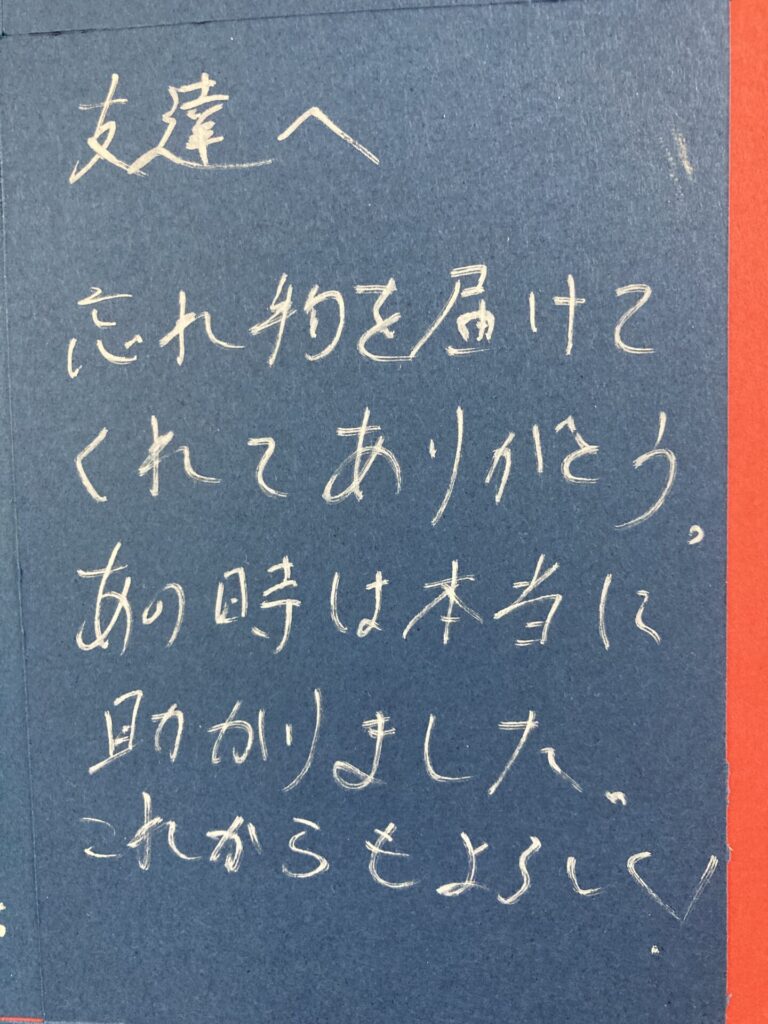 友達へ
忘れ物を届けて
くれてありがとう。
あの時は本当に
助かりました。
これからもよろしく!